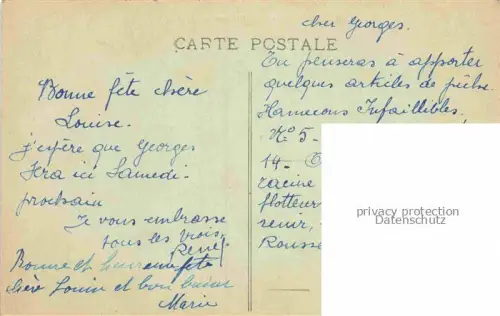 CARTE POSTALE
Bonne fête chère
Louise.
j'espère que Georges
sera ici Samedi
prochain
Je vous embrasse
tous les trois.
René
Bonne et heureuse fête
chère Louise et bon baiser
Marie
cher Georges.
Tu penseras à apporter
quelques articles de pêche
Hameçons Infaillibles.
No 5-
14 -
racine
flotteur
Rousse
privacy protection
Datenschutz